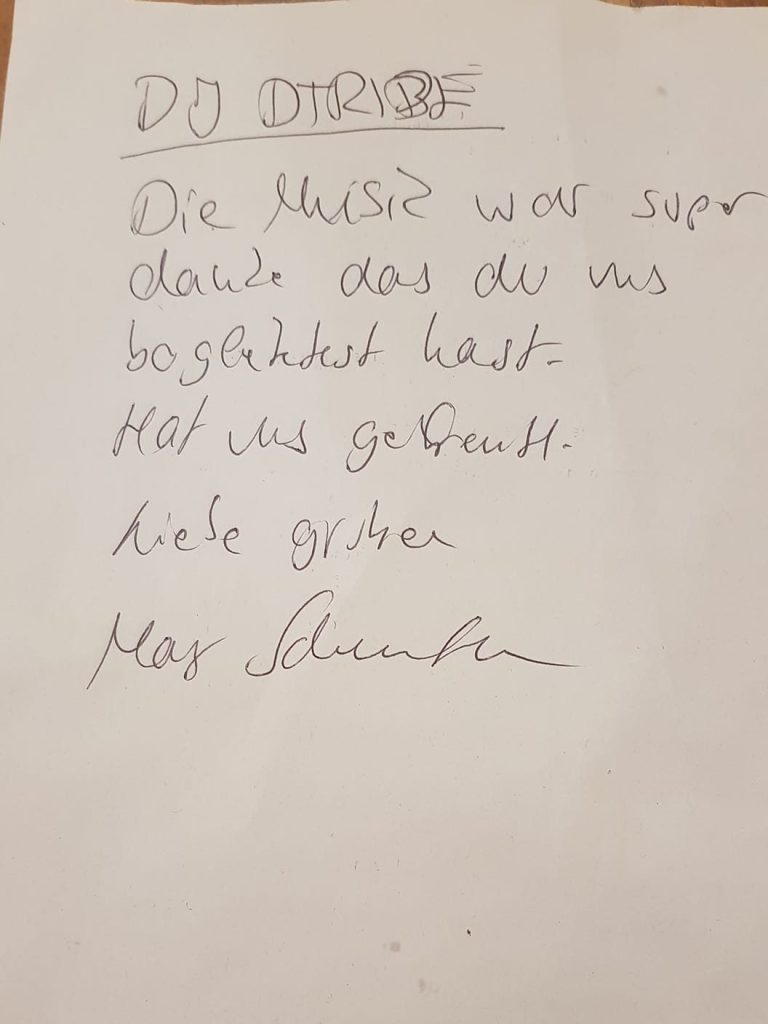 DJ DTRIBE
Die Musik war super
danke das du uns
begleitetest hast.
Hat uns gefreut.
Liebe grüße
Max